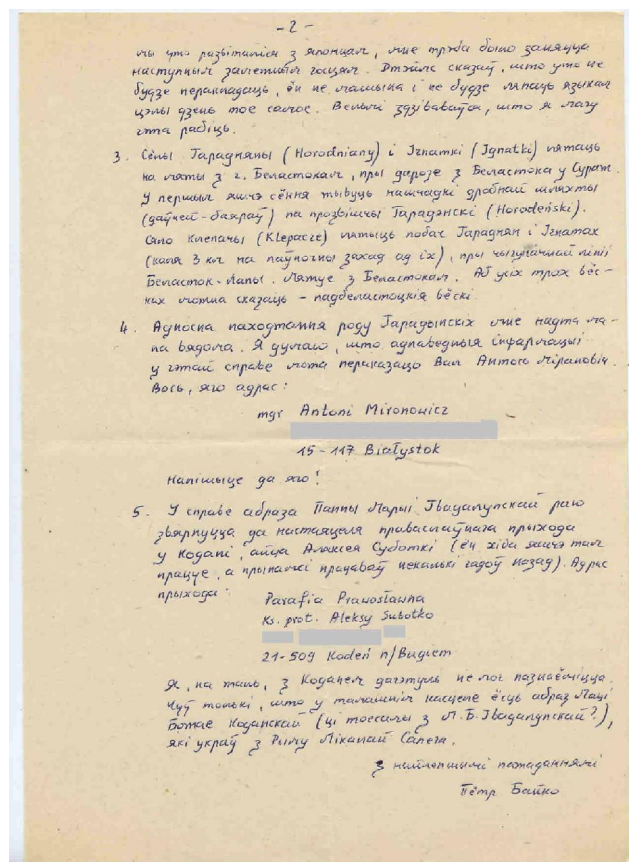 - 2 -
мы ужо развіталіся з японцам, мне трэба было заняцца
наступным замежным госцям. Отэйлс сказаў, што ужо не
будзе перакладаць, ён не машына і не будзе ляпаць языкам
цэлы дзень тое самое. Вельмі здзіваваўся, што я магу
гэта рабіць.
3. Сёлы Гарадняны (Horodniany) і Ігнаткі (Ignatki) ляжаць
на мяжы з г. Беластокам, пры дарозе з Беластока у Сураж.
У першым яшчэ сёння жывуць нашчадкі дробнай шляхты
(даўней-баяраў) па прозвішчы Гарадэнскі (Horodeński).
Сяло Клепачы (Klepacze) ляжыць побач Гараднян і Ігнатак
(каля 3 км на паўночны захад ад іх), пры чыгуначнай лініі
Беласток-Лапы. Мяжуе з Беластокам. Аб усіх трох вёс-
ках можна сказаць - падбеластоцкія вёскі.
4. Адносна паходжання роду Гарадынскіх мне надта ма-
ла вядома. Я думаю, што адпаведныя інфармацыі
у гэтай справе можа пераказаць Вам Антось Мірановіч.
Вось, яго адрас:
mgr Antoni Mironowicz
15-117 Białystok
Напішыце да яго!
5. У справе абраза Панны Марыі Гвадалупскай раю
звярнуцца да настаяцеля праваслаўнага прыхода
у Кодані, айца Аляксея Суботкі (ён хіба яшчэ там
працуе, а прынамсі працаваў некалькі гадоў назад). Адрас
прыхода:
Parafia Prawosławna
Ks. prot. Aleksy Subotko
21-509 Kodeń n/Bugiem
Я, на жаль, з Коданем дагэтуль не мог пазнаёміцца.
Чуў толькі, што у тамашнім касцеле ёсць абраз Маці
Божае Коданскай (ці тоесамы з М.Б. Гвадалупскай?),
які украў з Рыму Мікалай Сапега.
З найлепшымі пажаданнямі
Пётр Байко